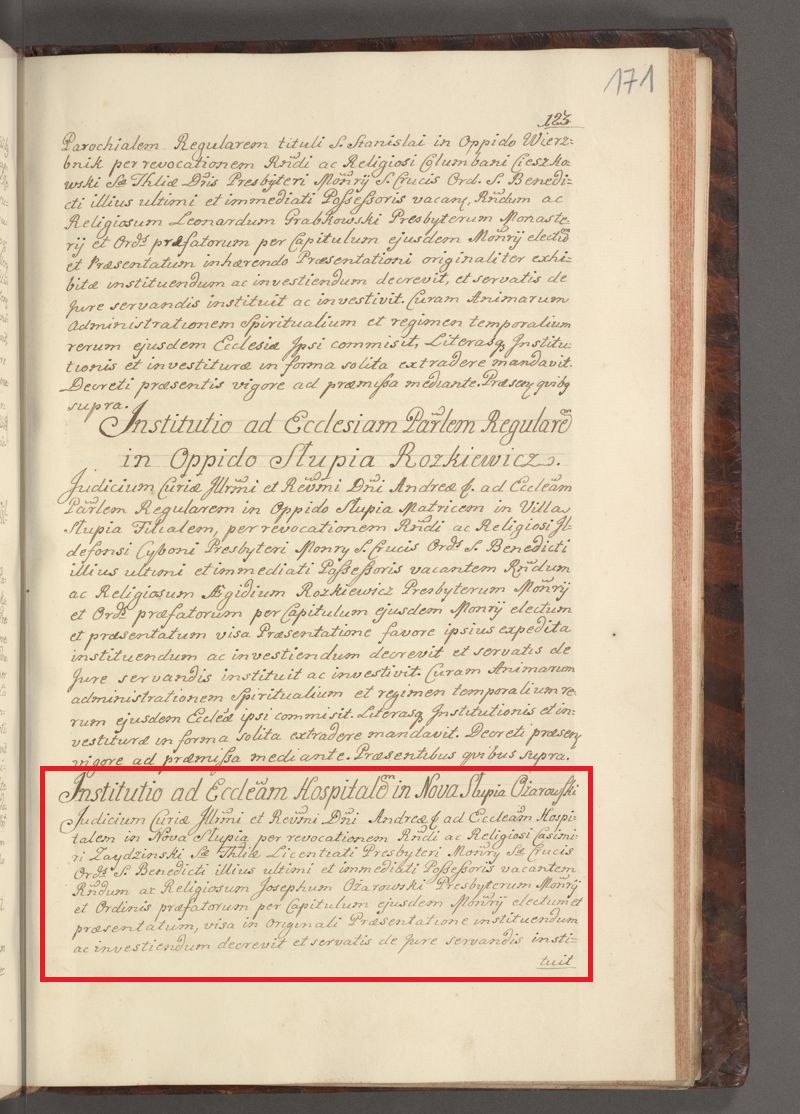 171
123
Parochialem Regularem tituli S. Stanislai in Oppido Wierz=
bnik per revocationem Rñdi ac Religiosi Columbani Cieszko
wski Sæ Thliæ Dñis Presbyteri Moñrij S. Crucis Ord. S. Benedi=
cti illius ultimi et immediati Possessoris vacan, Rñdum ac
Religiosum Leonardum Grabkowski Presbyterum Monaste
rij et Ordˢ præfatorum per Capitulum ejusdem Moñrij electū
et Præsentatum inhærendo Præsentationi originaliter exhi=
bitæ instituendum ac investiendum decrevit, et servatis de
Jure servandis instituit ac investivit. Curam Animarum
administrationem Spiritualium et regimen temporalium
rerum ejusdem Ecclesiæ Ipsi commisit, Literasq; Institu=
tionis et investituræ in forma solita extradere mandavit.
Decreti præsentis vigore ad præmissa mediante. Præsen; qvibq
supra.
Institutio ad Ecclesiam Parlem Regularē
in Oppido Słupia Rozkiewicz.
Judicium Curiæ Jllrmi et Revmi Dñi Andreæ J. ad Eccleam
Parlem Regularem in Oppido Słupia Matricem in Villa
Słupia Filialem, per revocationem Rñdi ac Religiosi Jl=
defonsi Cyboni Presbyteri Monry S. Crucis Ordˢ S. Benedicti
illius ultimi et immediati Possessoris vacantem Rñdum
ac Religiosum Ægidium Rozkiewicz Presbyterum Moñrij
et Ordˢ præfatorum per Capitulum ejusdem Monrij electum
et præsentatum visa Præsentatione favore ipsius expedita
instituendum ac investiendum decrevit et servatis de
Jure servandis instituit ac investivit. Curam Animarum
administrationem Spiritualium et regimen temporalium re=
rum ejusdem Eccleæ ipsi commisit. Literasq; Institutionis et in=
vestituræ in forma solita extradere mandavit. Decreti præsen;
vigore ad præmissa mediante. Præsentibus qvibus supra.
Institutio ad Eccleam Hospitalē in Nova Słupia Ożarowski
Judicium Curiæ Jllrmi et Revmi Dñi Andreæ J. ad Eccleam Hospi=
talem in Nova Słupia per revocationem Rñdi ac Religiosi Casimi=
ri Zaydzinski Sæ Thliæ Licentiati Presbyteri Moñry Sæ Crucis
Ordˢ S. Benedicti illius ultimi et immediati Possessoris vacantem
Rñdum ac Religiosum Josephum Ożarowski Presbyterum Moñrij
et Ordinis præfatorum per Capitulum ejusdem Moñrij electum et
præsentatum, visa in Originali Præsentatione instituendum
ac investiendum decrevit et servatis de Jure servandis insti=
tuit